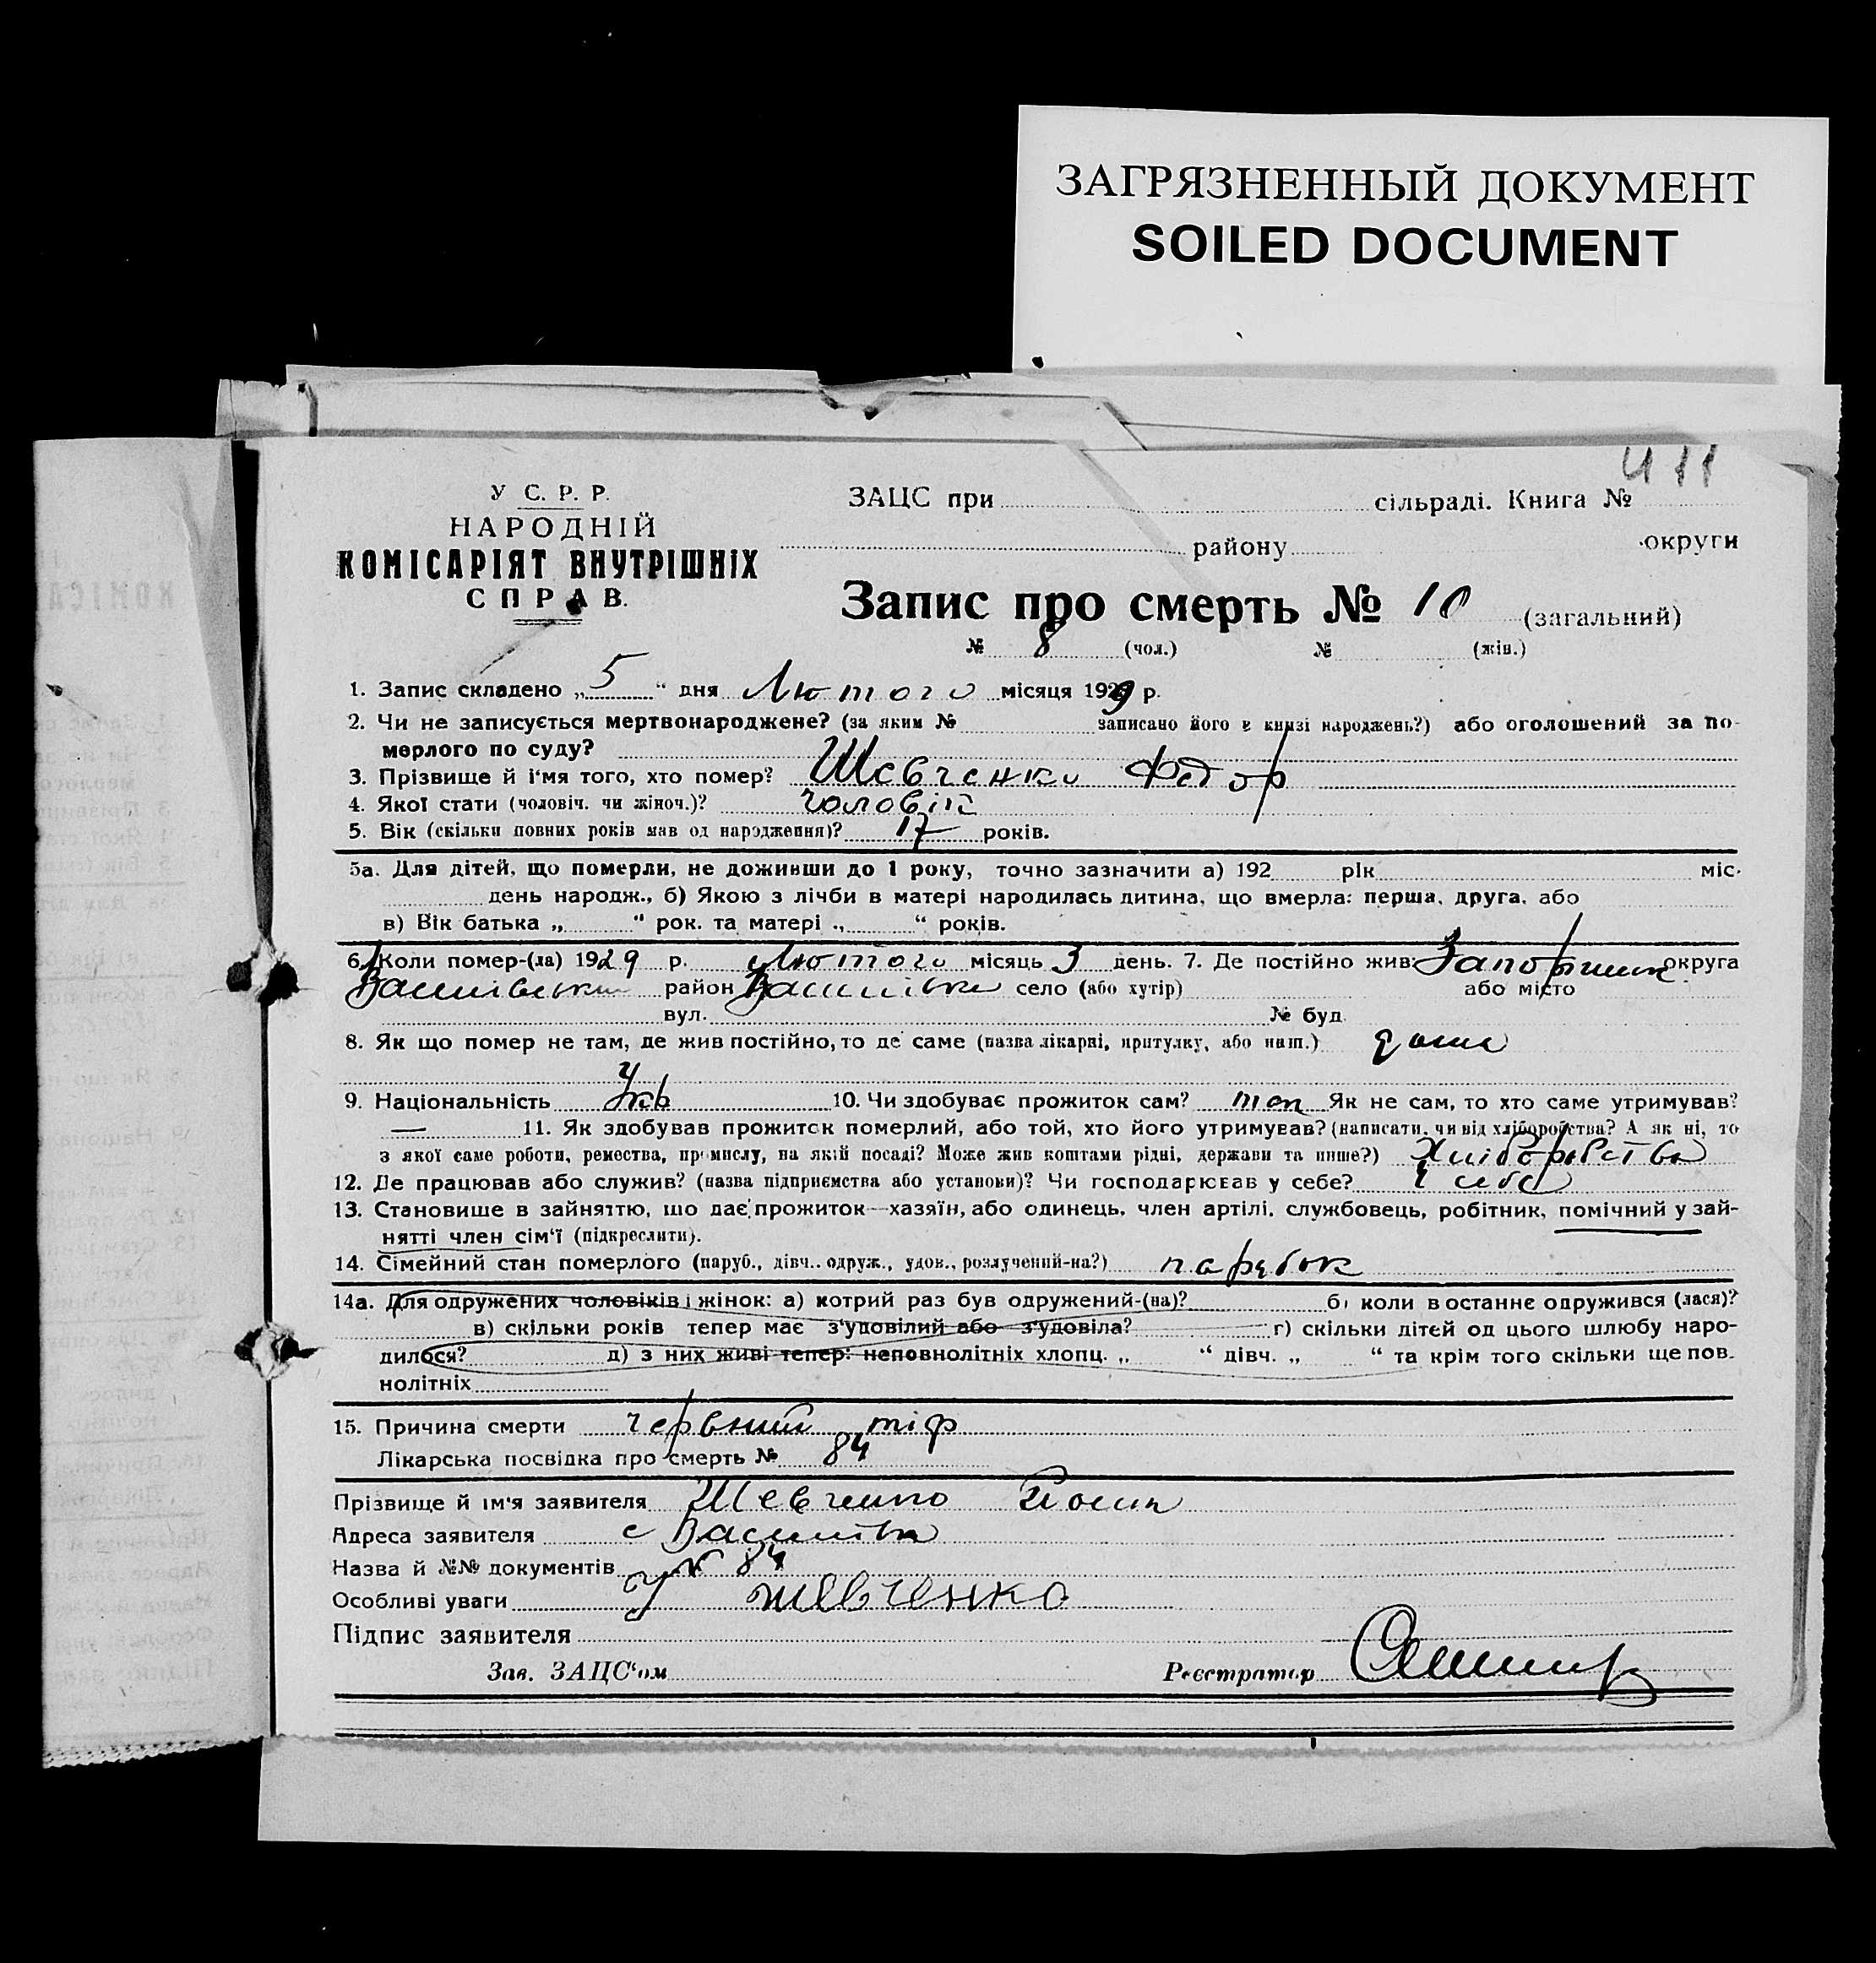 ЗАГРЯЗНЕННЫЙ ДОКУМЕНТ
SOILED DOCUMENT
411
У С. Р. Р.
НАРОДНІЙ
КОМІСАРІЯТ ВНУТРІШНІХ
СПРАВ.
ЗАЦС при сільраді. Книга №
району округи
Запис про смерть № 10 (загальний)
№ 8 (чол.) № (жін.)
1. Запис складено „5“ дня Лютого місяця 1929 р.
2. Чи не записується мертвонароджене? (за яким № записано його в книзі народжень?) або оголошений за по-
мерлого по суду?
3. Прізвище й ім'я того, хто помер? Шевченко Федор
4. Якої стати (чоловіч. чи жіноч.)? чоловік
5. Вік (скільки повних років мав од народження)? 17 років.
5а. Для дітей, що померли, не доживши до 1 року, точно зазначити а) 192 рік міс.
день народж., б) Якою з лічби в матері народилась дитина, що вмерла: перша, друга, або
в) Вік батька „ “ рок. та матері „ “ років.
6. Коли помер-(ла) 1929 р. Лютого місяць 3 день. 7. Де постійно жив: округа
район Василівка село (або хутір) або місто
вул. № буд.
8. Як що помер не там, де жив постійно, то де саме (назва лікарні, притулку, або инш.) дома
9. Національність Укр 10. Чи здобуває прожиток сам? Як не сам, то хто саме утримував?
— 11. Як здобував прожиток померлий, або той, хто його утримував? (написати, чи від хліборобства? А як ні, то
з якої саме роботи, ремества, промислу, на якій посаді? Може жив коштами рідні, держави та инше?) Хліборобство
12. Де працював або служив? (назва підприємства або установи)? Чи господарював у себе? у себе
13. Становище в зайняттю, що дає прожиток—хазяїн, або одинець, член артілі, службовець, робітник, помічний у зай-
нятті член сім'ї (підкреслити).
14. Сімейний стан померлого (паруб., дівч., одруж., удов., розлучений-на?) парубок
14а. Для одружених чоловіків і жінок: а) котрий раз був одружений-(на)? б) коли в останнє одружився (лася)?
в) скільки років тепер має з'удовілий або з'удовіла? г) скільки дітей од цього шлюбу наро-
дилося? д) з них живі тепер: неповнолітніх хлопц. „ “ дівч. „ “ та крім того скільки ще пов-
нолітніх
15. Причина смерти червний тіф
Лікарська посвідка про смерть № 84
Прізвище й ім'я заявителя Шевченко
Адреса заявителя с Василівка
Назва й №№ документів № 84
Особливі уваги Шевченко
Підпис заявителя
Зав. ЗАЦС'ом Реєстратор